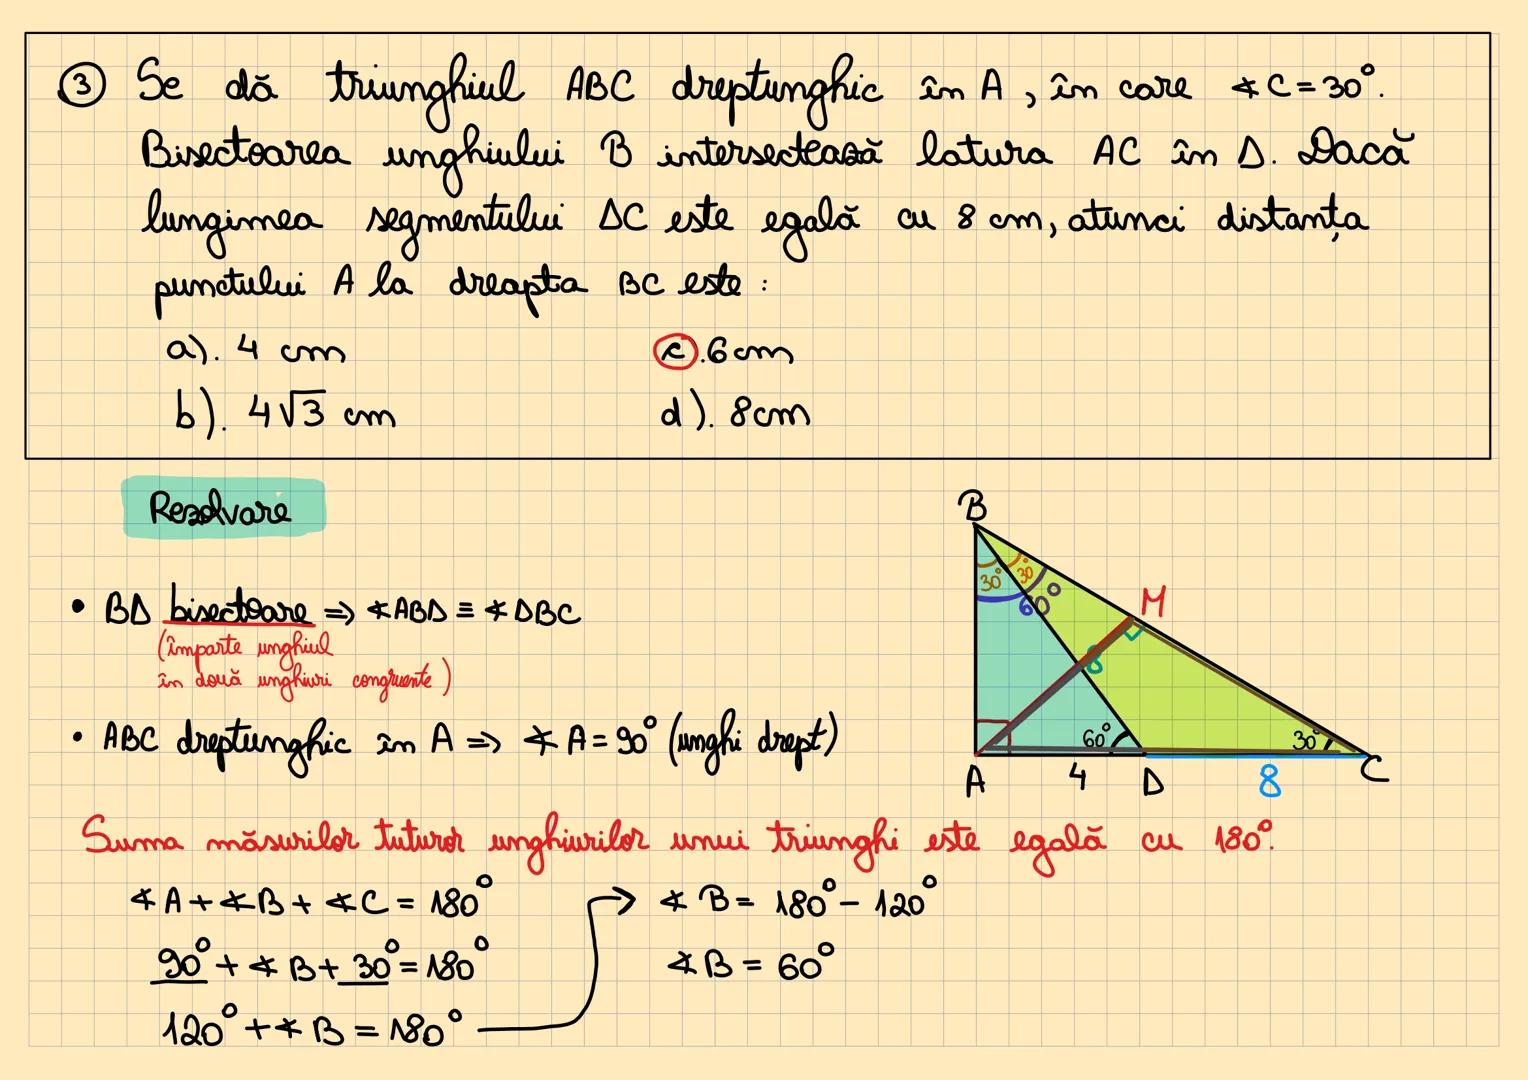 3 Se dă triunghiul ABC dreptunghic în A, în care ∢C = 30°.
Bisectoarea unghiului B intersectează latura AC în D. Dacă
lungimea segmentului DC este egală cu 8 cm, atunci distanța
punctului A la dreapta BC este :
a). 4 cm
c). 6 cm
b). 4√3 cm
d). 8cm
Rezolvare
• BD bisectoare ⇒ ∢ABD ≡ ∢DBC
(împarte unghiul
în două unghiuri congruente)
• ABC dreptunghic în A ⇒ ∢A = 90° (unghi drept)
B
30° 30°
60°
M
8
60°
30°
A 4 D 8 C
Suma măsurilor tuturor unghiurilor unui triunghi este egală cu 180°.
∢A + ∢B + ∢C = 180°
90° + ∢B + 30° = 180°
120° + ∢B = 180°
∢B = 180° − 120°
∢B = 60°